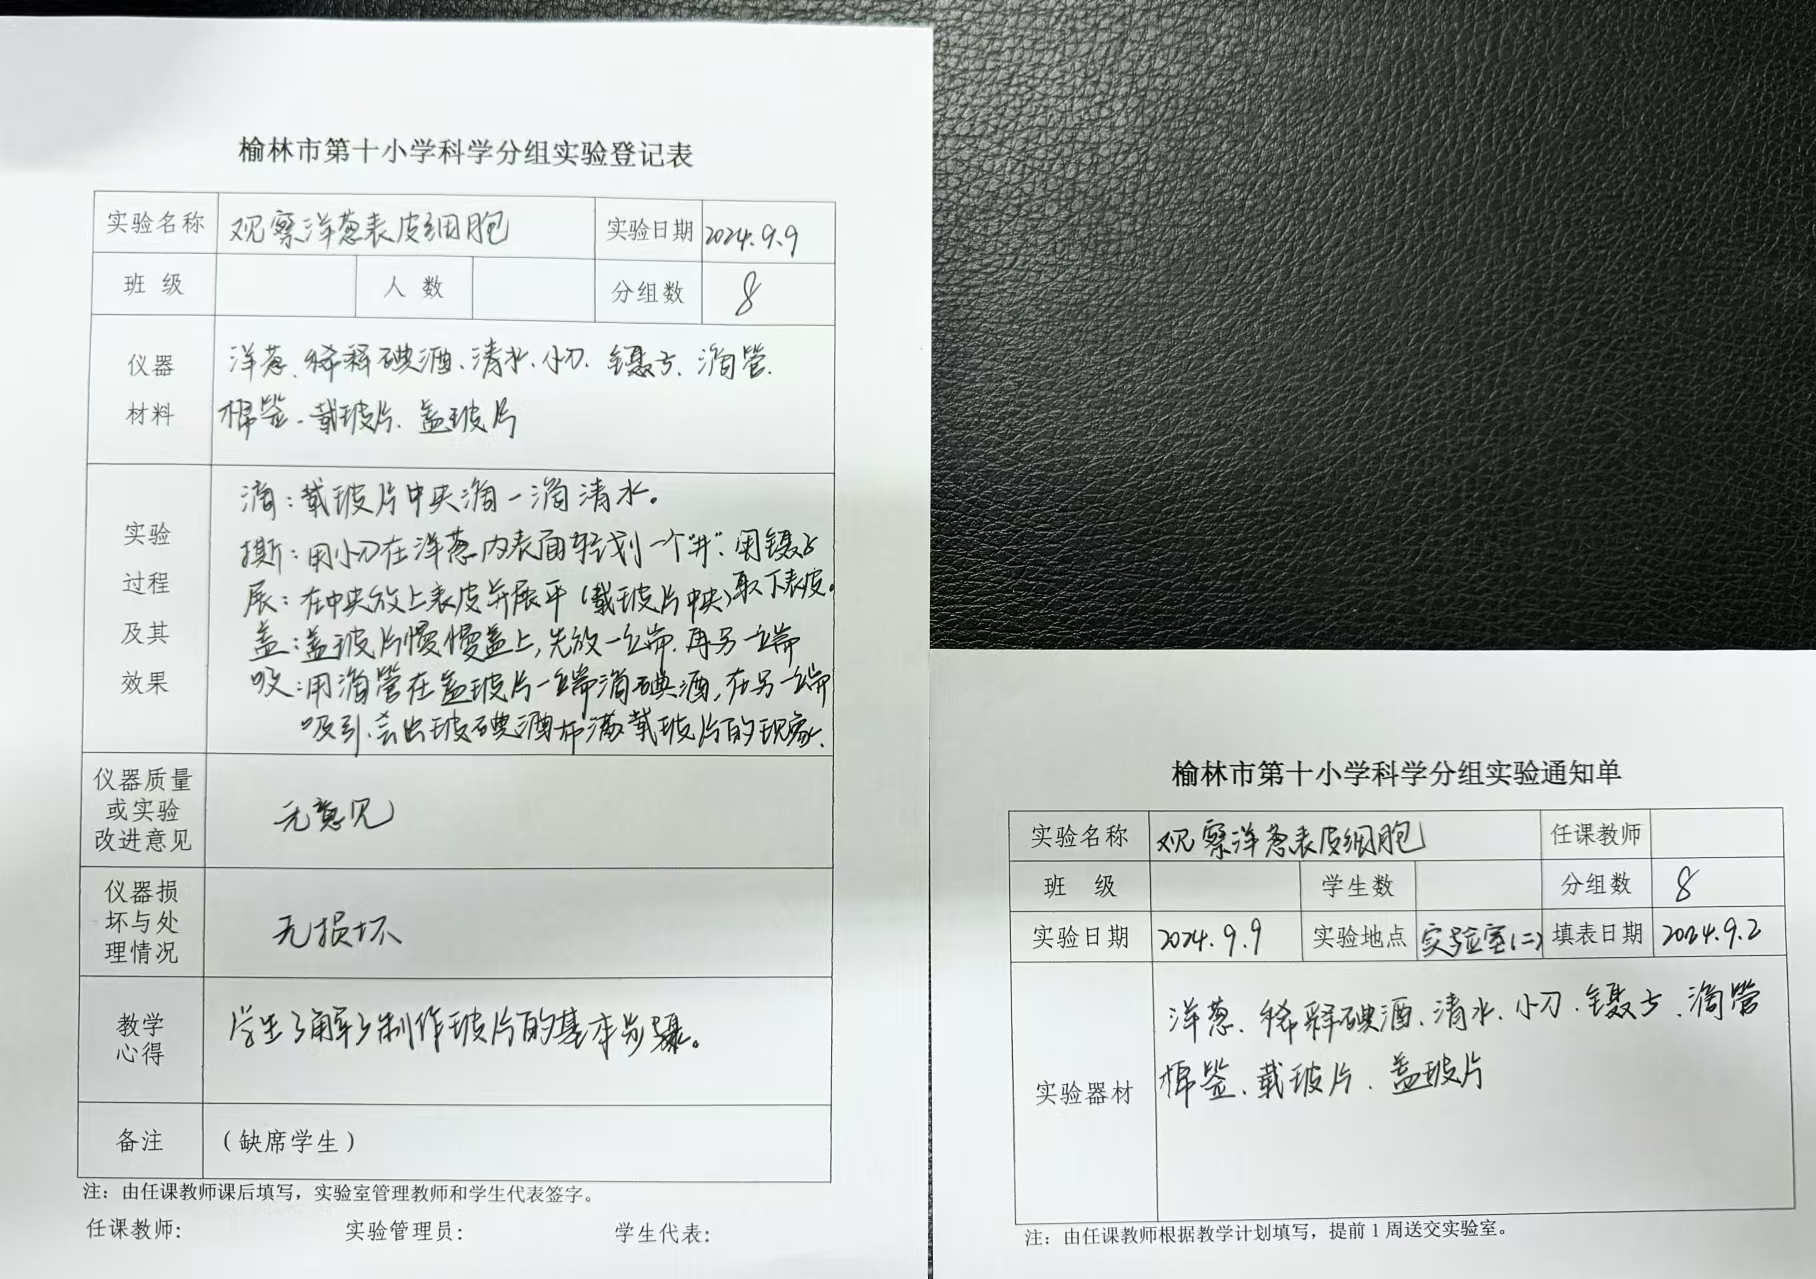 榆林市第十小学科学分组实验登记表
实验名称 观察洋葱表皮细胞 实验日期 2024.9.9
班 级 人 数 分组数 8
仪器
材料
洋葱、稀释碘酒、清水、小刀、镊子、滴管、
棉签、载玻片、盖玻片
实验
过程
及其
效果
滴：载玻片中央滴一滴清水。
撕：用小刀在洋葱内表面轻划一个“井”、用镊子
取下表皮。
展：在中央放上表皮并展平（载玻片中央）
盖：盖玻片慢慢盖上，先放一端、再另一端
吸：用滴管在盖玻片一端滴碘酒，在另一端
吸引、会出玻碘酒布满载玻片的现象、
仪器质量
或实验
改进意见
无意见
仪器损
坏与处
理情况
无损坏
教学
心得
学生了解了制作玻片的基本步骤。
备注 （缺席学生）
注：由任课教师课后填写，实验室管理教师和学生代表签字。
任课教师： 实验管理员： 学生代表：
榆林市第十小学科学分组实验通知单
实验名称 观察洋葱表皮细胞 任课教师
班 级 学生数 分组数 8
实验日期 2024.9.9 实验地点 实验室(二) 填表日期 2024.9.2
实验器材
洋葱、稀释碘酒、清水、小刀、镊子、滴管
棉签、载玻片、盖玻片
注：由任课教师根据教学计划填写，提前 1 周送交实验室。